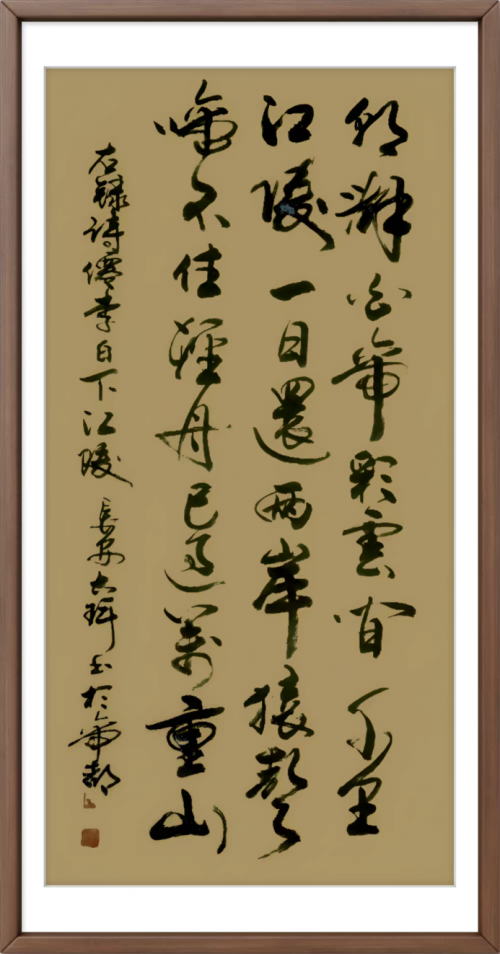 朝辭白帝彩雲間千里
江陵一日還兩岸猿聲
啼不住輕舟已過萬重山
右錄詩僊李白下江陵 長安 書於帝都